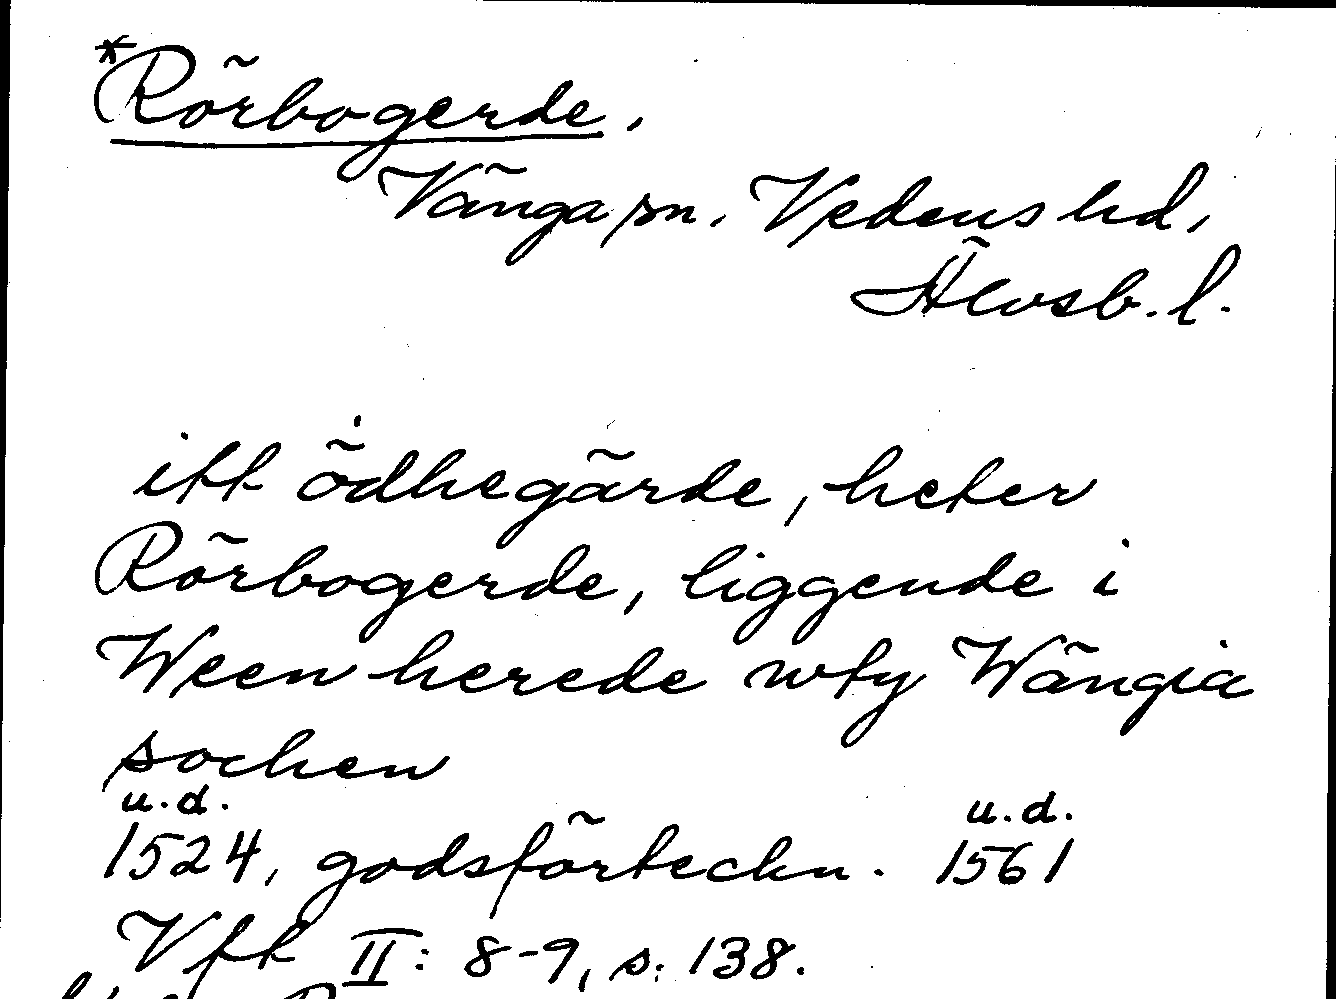 *Rörbogerde.
Vånga sn. Vedens hd.
Älvsb. l.
itt ödhegärde, heter
Rörbogerde, liggende i
Ween herede wty Wångia
sochen
u.d. u.d.
1524, godsförteckn. 1561
Vft II: 8-9, s. 138.